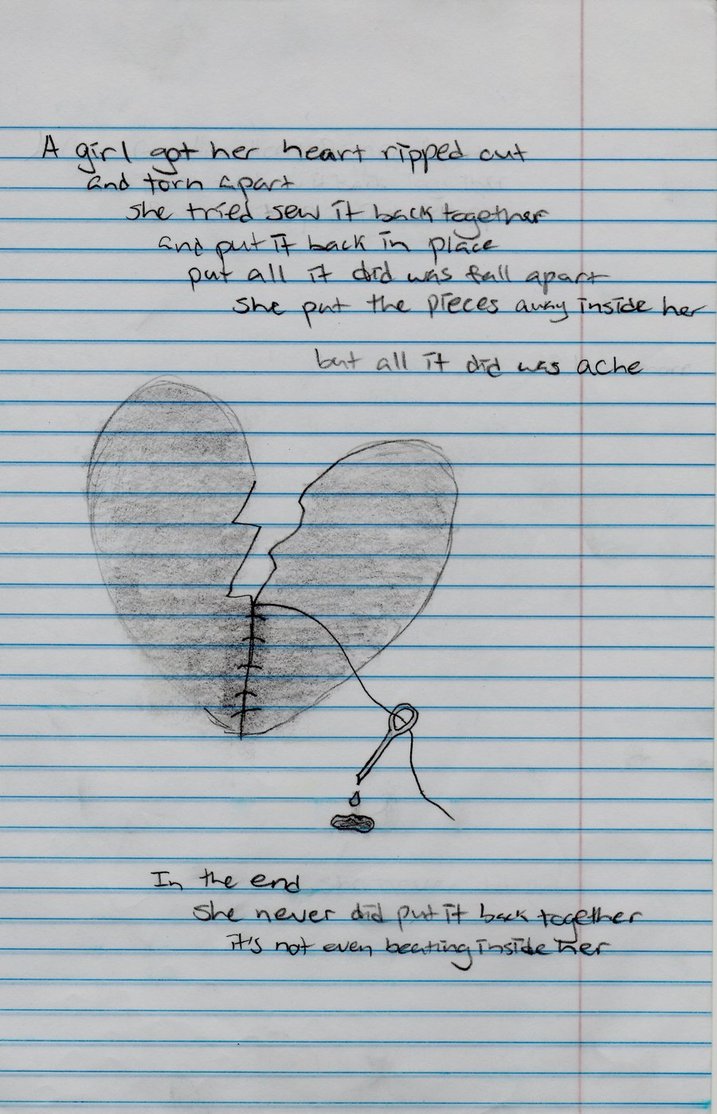 A girl got her heart ripped out
and torn apart
she tried sew it back together
and put it back in place
put all it did was fall apart
she put the pieces away inside her
but all it did was ache
In the end
she never did put it back together
it's not even beating inside her